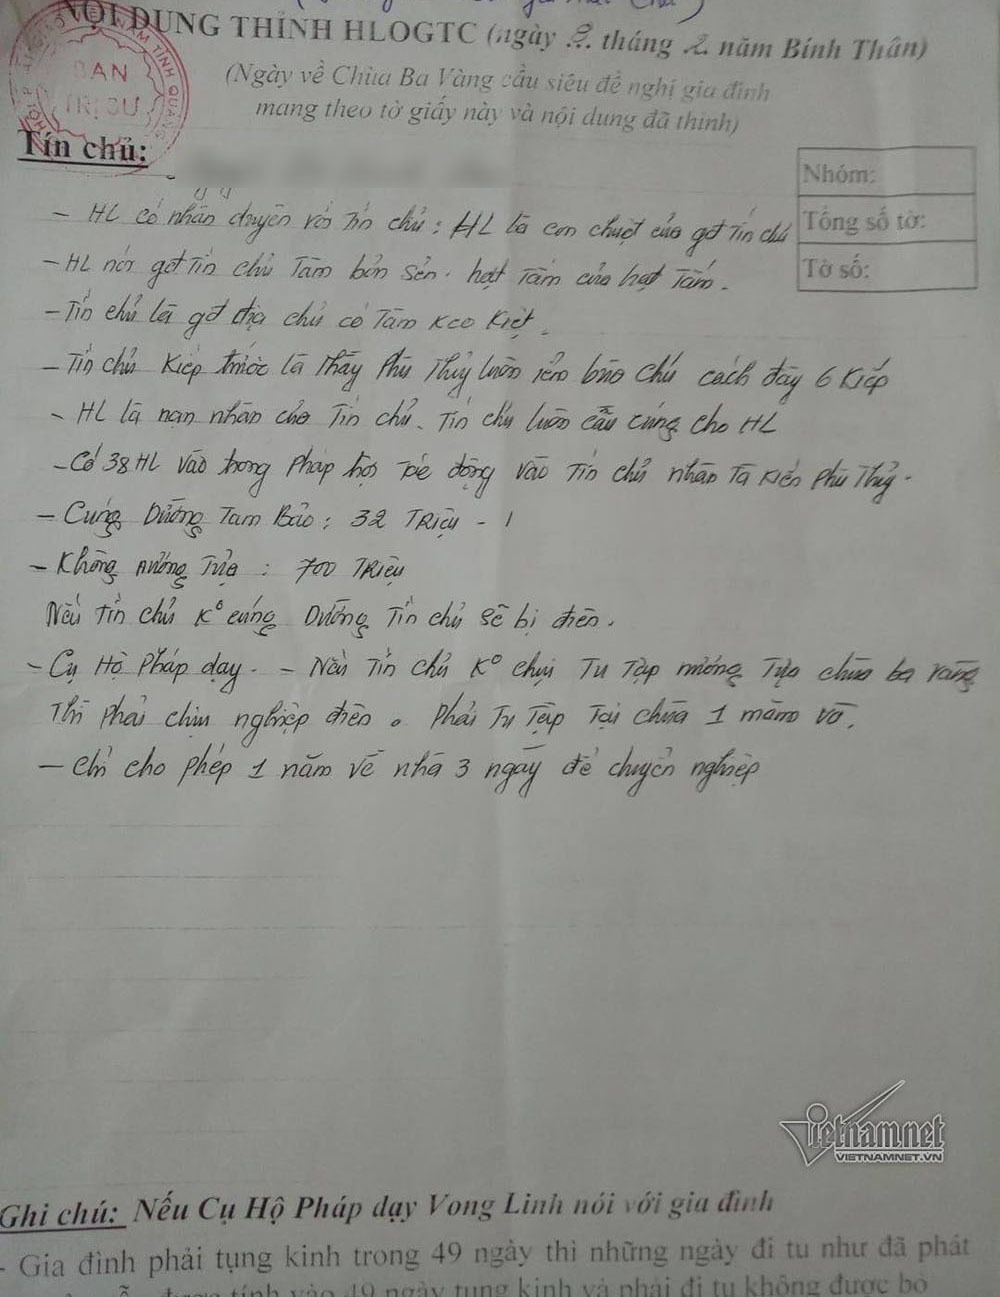 NỘI DUNG THỈNH HLOGTC (ngày 2 tháng 2 năm Bính Thân)
(Ngày về Chùa Ba Vàng cầu siêu đề nghị gia đình
mang theo tờ giấy này và nội dung đã thỉnh)
BAN
TRỊ SỰ
Tín chủ:
Nhóm:
Tổng số tờ:
Tờ số:
- HL có nhân duyên với Tín chủ: HL là con chuột của gđ Tín chủ
- HL nói gđ Tín chủ Tâm bỏn sẻn. hạt Tấm của hạt Tấm.
- Tín chủ là gđ địa chủ có Tâm keo kiệt.
- Tín chủ Kiếp trước là Thầy Phù Thủy luôn yểm bùa chú cách đây 6 Kiếp
- HL là nạn nhân của Tín chủ. Tín chủ luôn cầu cúng cho HL
- Có 38 HL vào trong Pháp hội tác động vào Tín chủ nhân Tà kiến Phù Thủy.
- Cúng Dường Tam Bảo: 32 Triệu - 1
- Không nương Tựa: 700 Triệu
Nếu Tín chủ K° cúng Dường Tín chủ sẽ bị điên.
- Cụ Hộ Pháp dạy. - Nếu Tín chủ K° chịu Tu Tập nương Tựa chùa ba vàng
Thì Phải chịu nghiệp điên. Phải Tu Tập Tại chùa 1 năm
- Chỉ cho phép 1 năm về nhà 3 ngày để chuyển nghiệp
Vietnamnet
VIETNAMNET.VN
Ghi chú: Nếu Cụ Hộ Pháp dạy Vong Linh nói với gia đình
- Gia đình phải tụng kinh trong 49 ngày thì những ngày đi tu như đã phát
được tính vào 49 ngày tụng kinh và phải đi tu không được bỏ